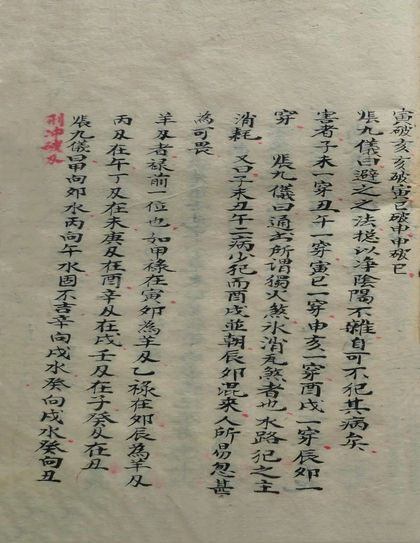 寅破亥亥破寅巳破申申破巳
張九儀曰避之之法搃以净陰陽不雜自可不犯其病矣
害者子未一穿丑午一穿寅巳一穿申亥一穿酉戌一穿辰卯一
穿 張九儀曰通书所谓獨火煞氷消瓦煞者也水路犯之主
消耗 又曰子未丑午二病少犯而酉戌並朝辰卯混来人所易忽甚
為可畏
羊刃者禄前一位也如甲禄在寅卯為羊刃乙禄在卯辰為羊刃
丙刃在午丁刃在未庚刃在酉辛刃在戌壬刃在子癸刃在丑
張九儀曰甲向卯水丙向午水固不吉辛向戌水癸向戌水癸向丑
刑冲破刃